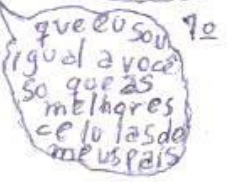 que eu sou 1º
igual a você
so que as
melhores
celulas do
meus pais